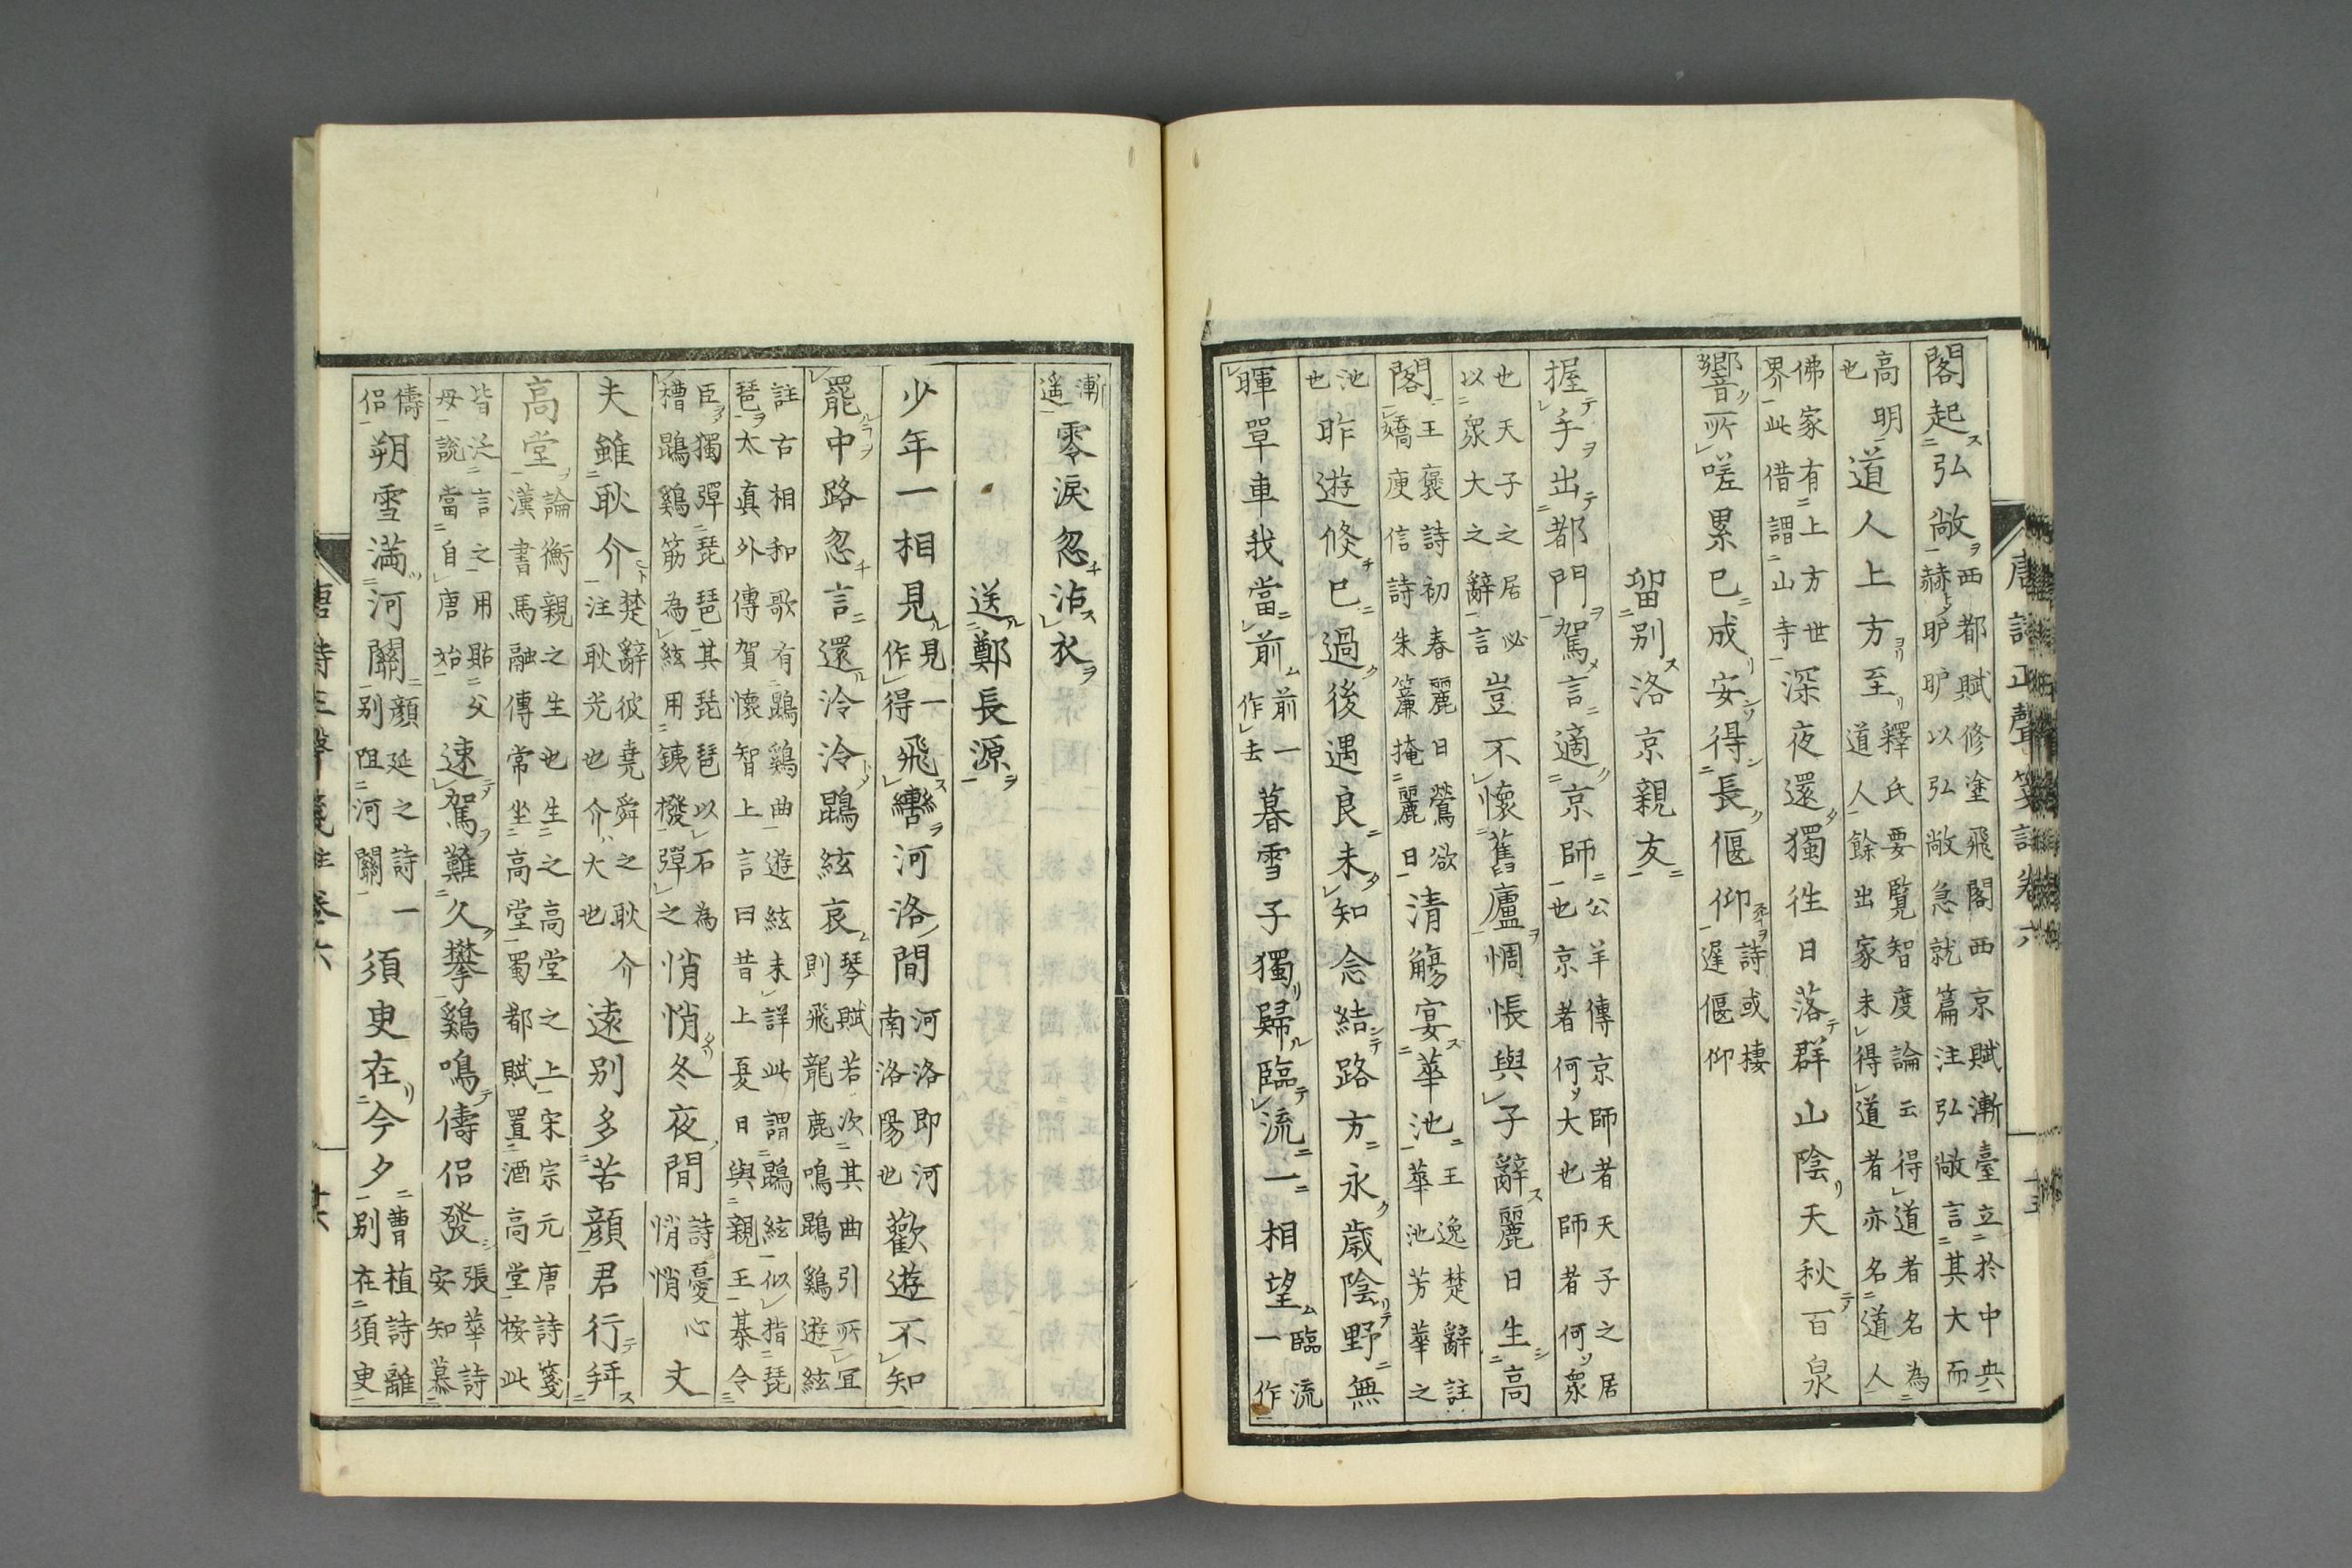 閣起弘敞西都賦修塗飛閣西京賦漸臺立於中央
赫旷旷以弘敞急就篇注弘敞言其大而
高明也道人上方至釋氏要覽智度論云得道者名為
道人餘出家未得道者亦名道人
佛家有上方世界此借謂山寺深夜還獨徃日落群山陰天秋百泉
響所嗟累已成安得長偃仰詩或棲遲偃仰
畱別洛京親友
握手出都門駕言適京師公羊傳京師者天子之居
也京者何大也師者何衆
也天子之居必以衆大之辭言豈不懷舊廬惆悵與子辭麗日生高
閣王褒詩初春麗日鶯欲嬌庾信詩朱簾掩麗日清觴宴華池王逸楚辭註
華池芳華之
池也昨遊倐已過後遇良未知念結路方永歳陰野無
暉單車我當前前一作去暮雪子獨歸臨流一相望臨流一作
唐詩正聲箋註卷六
十五
漸遥零淚忽沾衣
送鄭長源
少年一相見見一作得飛轡河洛間河洛即河南洛陽也歡遊不知
罷中路忽言還泠泠鵾絃哀琴賦若次其曲引所宜
則飛龍鹿鳴鵾鷄遊絃
註古相和歌有鵾鷄曲遊絃未詳此謂鵾絃似指琵
琶太真外傳賀懷智上言曰昔上夏日與親王棊令
臣獨彈琵琶其琵琶以石為槽鵾鷄筋為絃用銕撥彈之悄悄冬夜間詩憂心悄悄丈
夫雖耿介楚辭彼堯舜之耿介注耿光也介大也遠别多苦顔君行拜
高堂論衡親之生也生之高堂之上宋宗元唐詩箋
漢書馬融傳常坐高堂蜀都賦置酒高堂桉此
皆泛言之用貼父母說當自唐始速駕難久攀鷄鳴儔侣發張華詩
安知慕
儔侣朔雪満河關顔延之詩一别阻河關須臾在今夕曹植詩離
别在須臾